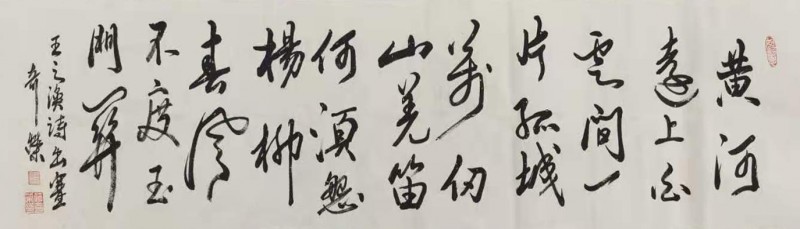 黄河
遠上白
雲間一
片孤城
萬仞
山羌笛
何須怨
楊柳
春風
不度玉
門關
王之渙詩出塞
奇榮